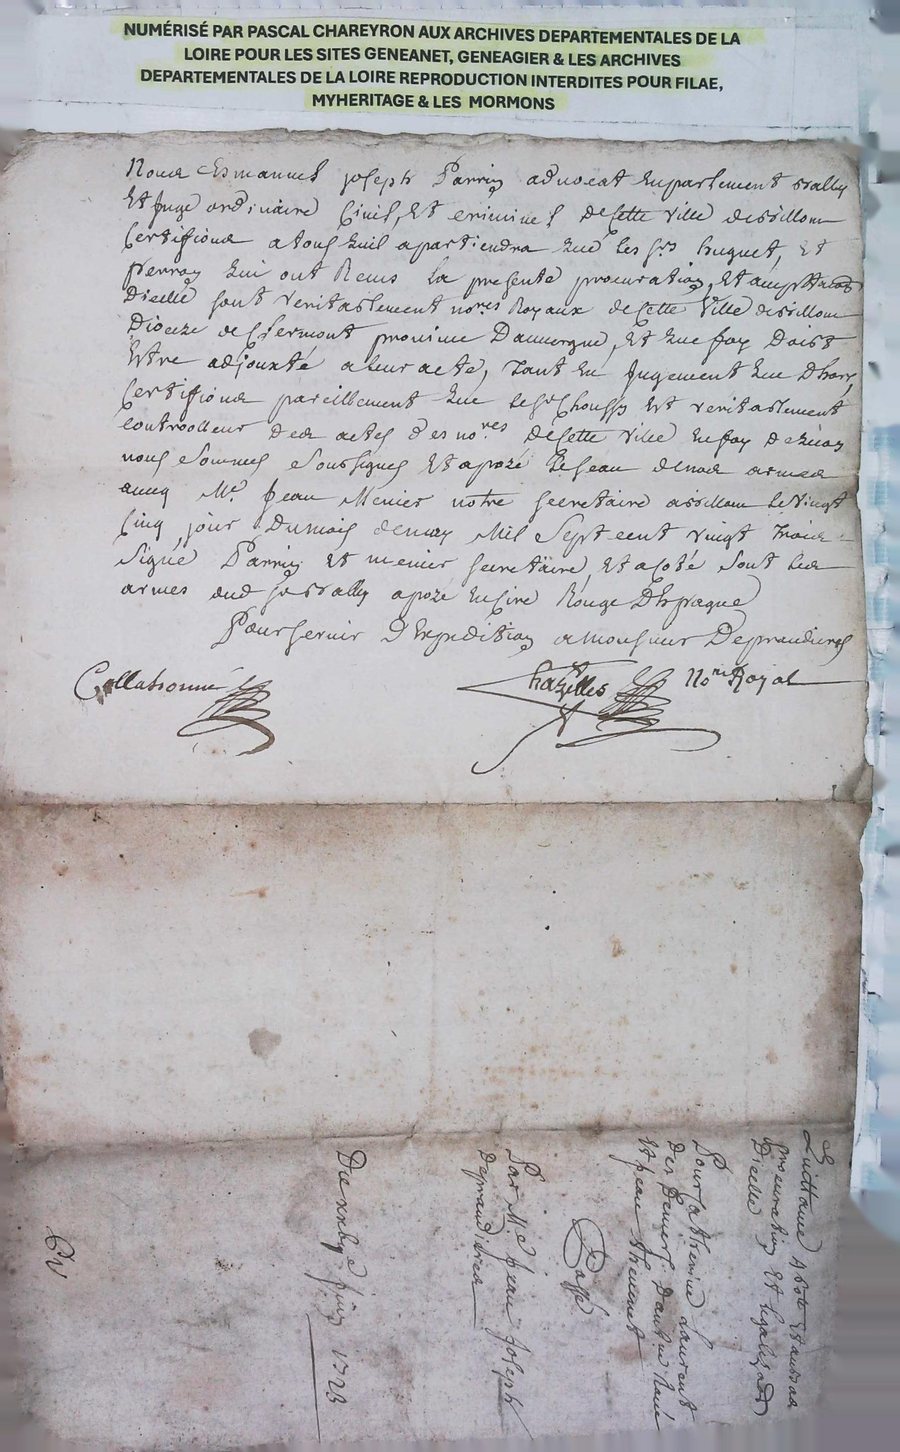 NUMÉRISÉ PAR PASCAL CHAREYRON AUX ARCHIVES DEPARTEMENTALES DE LA
LOIRE POUR LES SITES GENEANET, GENEAGIER & LES ARCHIVES
DEPARTEMENTALES DE LA LOIRE REPRODUCTION INTERDITES POUR FILAE,
MYHERITAGE & LES MORMONS
Nous Esmanuel joseph Parrin advocat Enparlement Bailly
Et Juge ordinaire Civil, Et criminel decette ville
Certiffions atous quil apartiendra que les srs huguet, Et
perron qui ont Receus la presente procuration, Et
dicelle sont veritablement nores Royaux decette Ville
Dioceze declermont province Dauvergne, Et que foy Doist
Estre adjouxté aleur acte, Tant En Jugement que Dhors,
Certiffions pareillement que lesr Est veritablement
controolleur des actes des nores decette ville Enfoy dequoy
nous Sommes Soussignés Et apozé leseau denos armes
avecq Me Jean Menier nostre secretaire levingt
Cinq jour Dumois demay Mil Sept cent vingt Trois
Signé Parrin Et menier secretaire, Et acoté sont les
armes dud sr Bailly apozé EnCire Rouge Dhespagne
Pour servir DExpedition amonsieur Deprandieres
Collationné Chazelles Nore Royal
Quittance
procuration Et
Dicelle
Pour Catherine Laurent
Et jean thevenet
Passé
Par Me jean joseph
Deprandieres
Du juin 1723